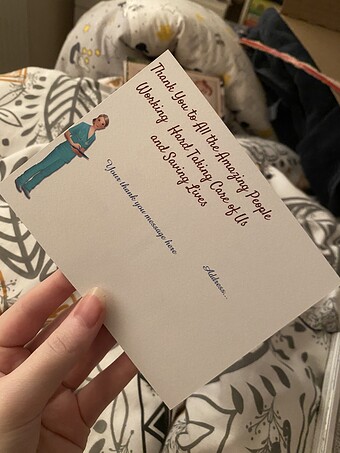 Thank You to All the Amazing People
Working Hard Taking Care of Us
and Saving Lives
Your thank you message here
Address...